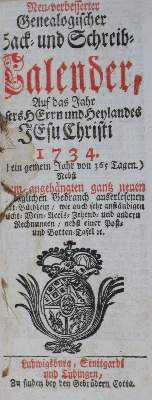 Neu-verbesserter
Genealogischer
Sack- und Schreib-
Calender,
Auf das Jahr
sers HErrn und Heylandes
JEsu Christi
1734.
ein gemein Jahr von 365 Tagen.)
Nebst
angehängten gantz neuen
täglichen Gebrauch auserlesenen
Büchlein, wie auch sehr anständigen
Wein- Accis- Zehend- und andern
Rechnungen, nebst einer Post-
und Botten-Tafel ꝛc.
Ludwigsburg, Stuttgardt
und Tübingen,
Zu finden bey den Gebrüdern Cotta.